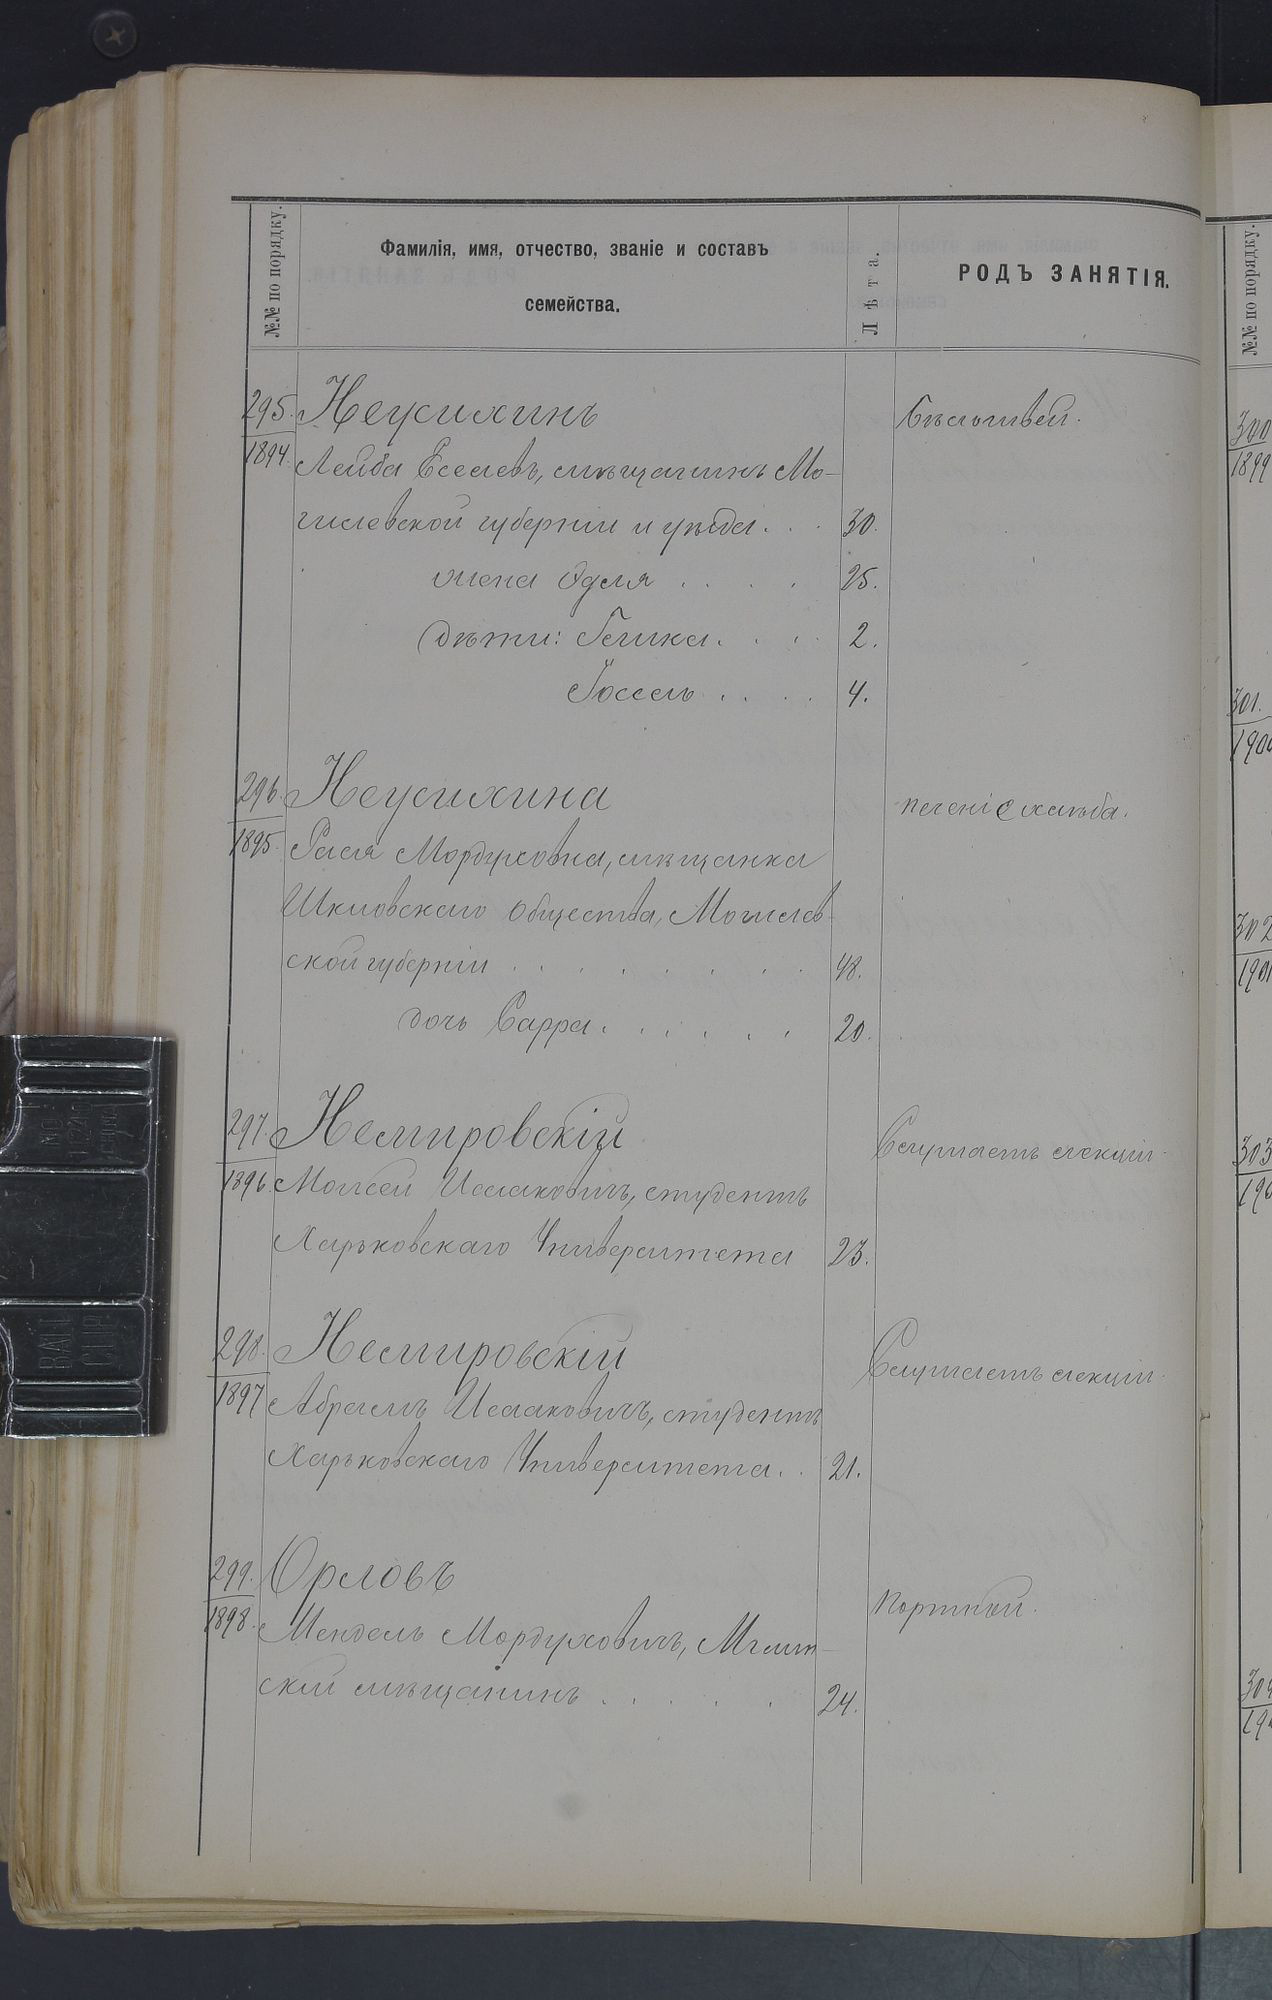 №№ по порядку.
Фамилія, имя, отчество, званіе и составъ
семейства.
Лѣта.
РОДЪ ЗАНЯТІЯ.
295. Неусихинъ
Бѣлошвей.
1894. Лейба Еселевъ, мѣщанинъ Мо-
гилевской губерніи и уѣзда . . . 30.
жена Эдля . . . . 25.
дѣти: . . . . 2.
Іоссель . . . . 4.
296. Неусихина
печеніе хлѣба.
1895. Рася Мордуховна, мѣщанка
Шкловскаго Общества, Могилев-
ской губерніи . . . . . . . . 48.
дочь Сарра . . . . . . 20.
297. Немировскій
Слушаетъ лекціи.
1896. Моисей Исааковичъ, студентъ
Харьковскаго Университета 23.
298. Немировскій
Слушаетъ лекціи.
1897 Абрамъ Исааковичъ, студентъ
Харьковскаго Университета . . 21.
299. Орловъ
Портной.
1898. Мендель Мордуховичъ, Мглин-
скій мѣщанинъ . . . . . 24.
№№ по порядку.
300
1899
301.
1900
302
1901
303
190
304
19
MO
11240
CHINA
BALL
CLIP